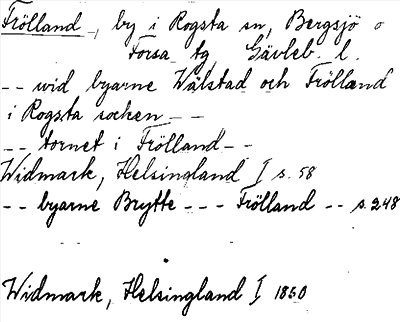 Frölland, by i Rogsta sn, Bergsjö o
Forsa tg Gävleb. l.
-- wid byarne Wålstad och Frölland
i Rogsta socken --
-- tornet i Frölland --
Widmark, Helsingland I s. 58
-- byarne Brytte --- Frölland -- s. 248
Widmark, Helsingland I 1860